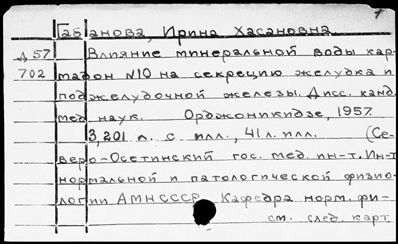 1
Габланова, Ирина Хасановна.
Д 57 Влияние минеральной воды кар-
702 мадон N10 на секрецию желудка и
поджелудочной железы. Дисс. канд.
мед. наук. Орджоникидзе, 1957.
3, 201 л. с илл., 41 л. илл. (Се-
веро-Осетинский гос. мед. ин-т. Ин-т
нормальной и патологической физио-
логии АМН СССР. Кафедра норм. фи-
см. след. карт.